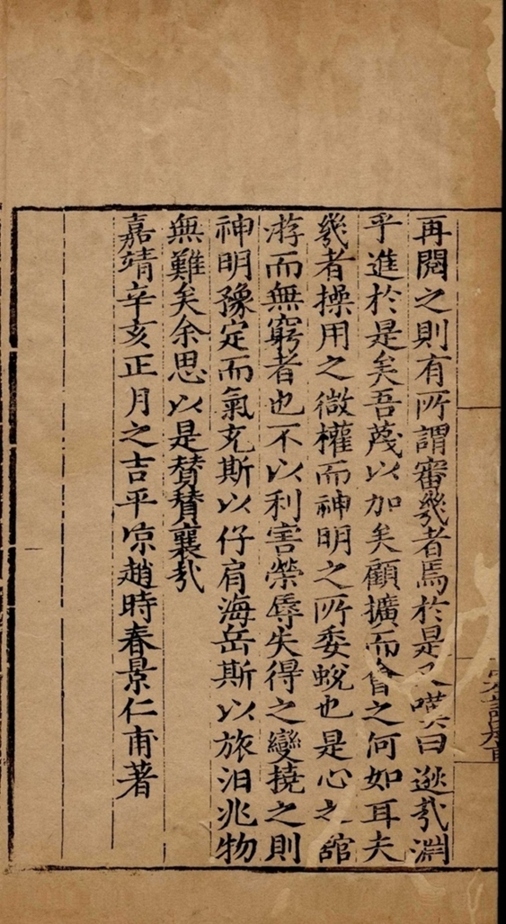 再閱之則有所謂審幾者焉於是又嘆曰逖哉淵
乎進於是矣吾蔑以加矣顧擴而會之何如耳夫
幾者操用之微權而神明之所委蛻也是心之舘
游而無窮者也不以利害榮辱失得之變撓之則
神明豫定而氣充斯以仔肩海岳斯以旅汨兆物
無難矣余思以是賛賛襄哉
嘉靖辛亥正月之吉平凉趙時春景仁甫著